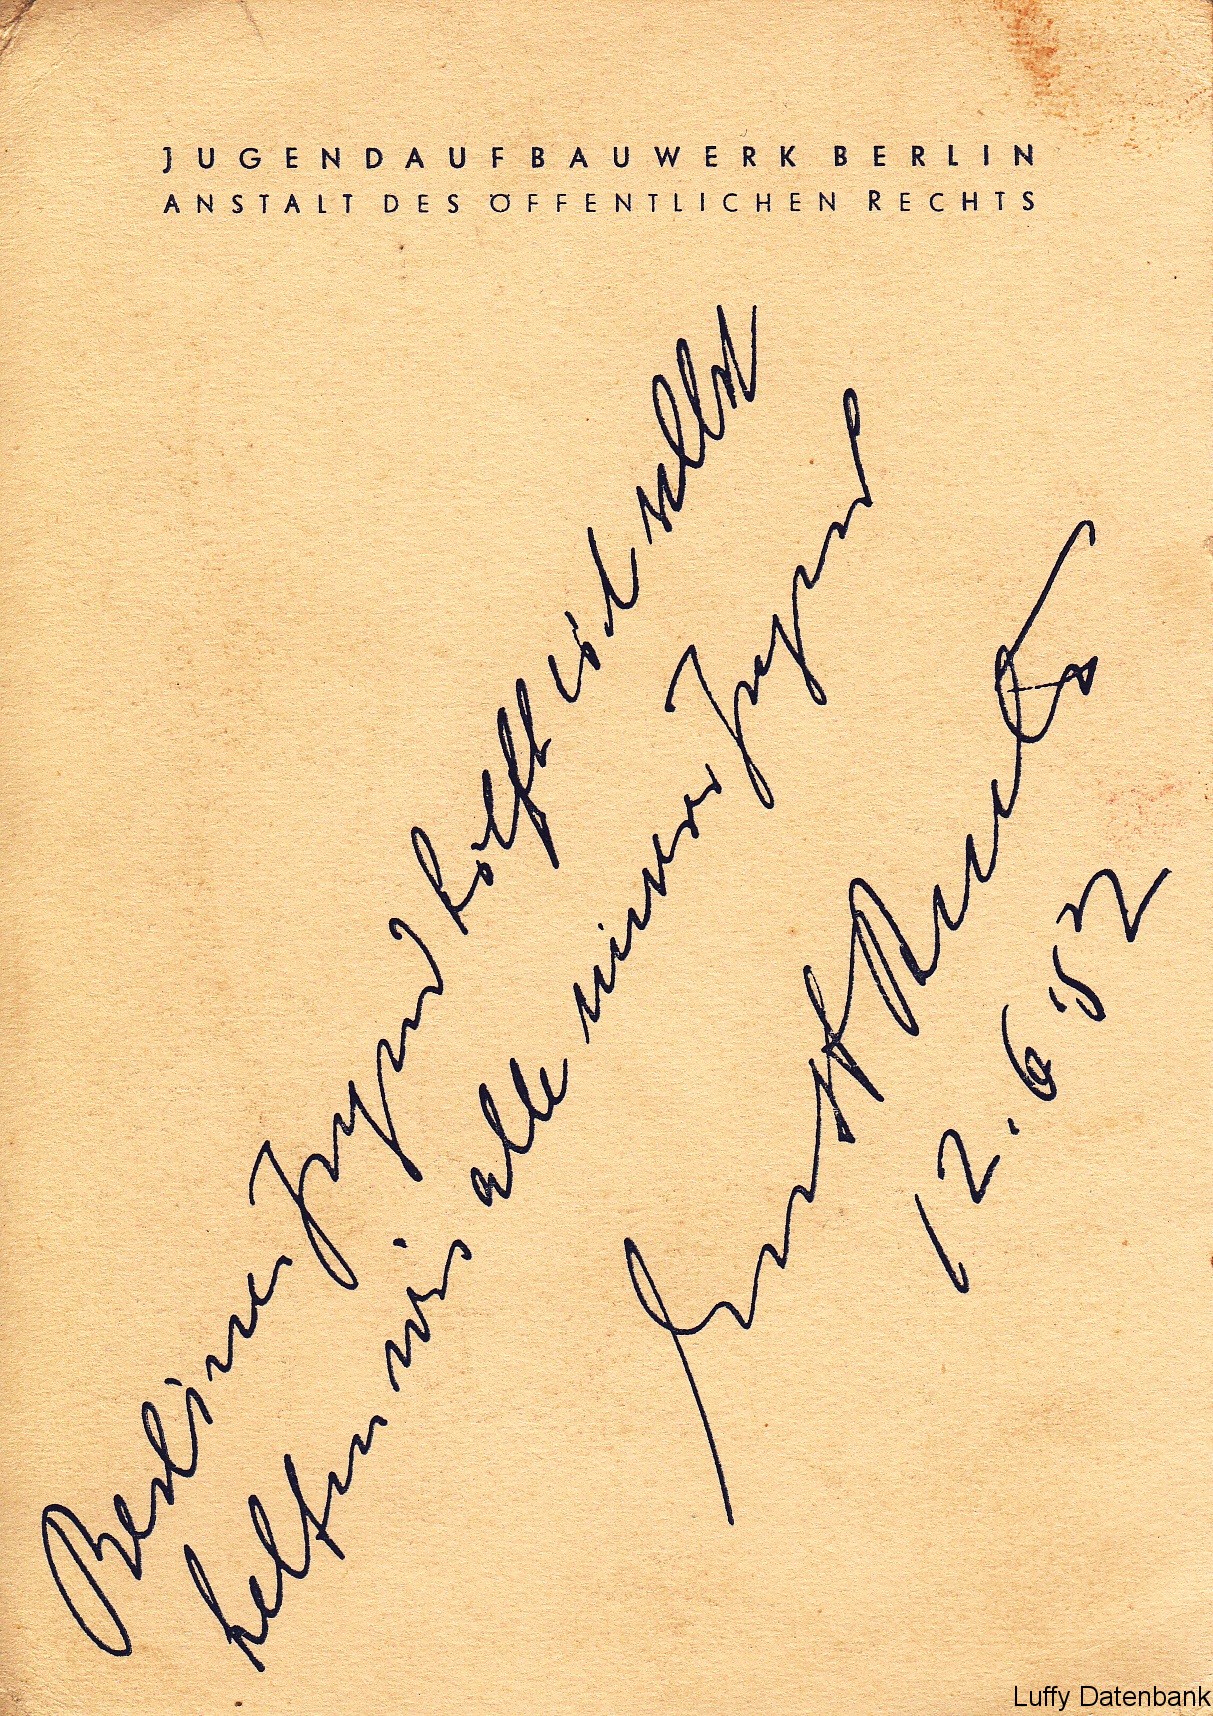 JUGENDAUFBAUWERK BERLIN
ANSTALT DES ÖFFENTLICHEN RECHTS
Berliner Jugend hilft sich selbst
helfen wir alle unserer Jugend
Ernst Reuter
12.6.52
Luffy Datenbank